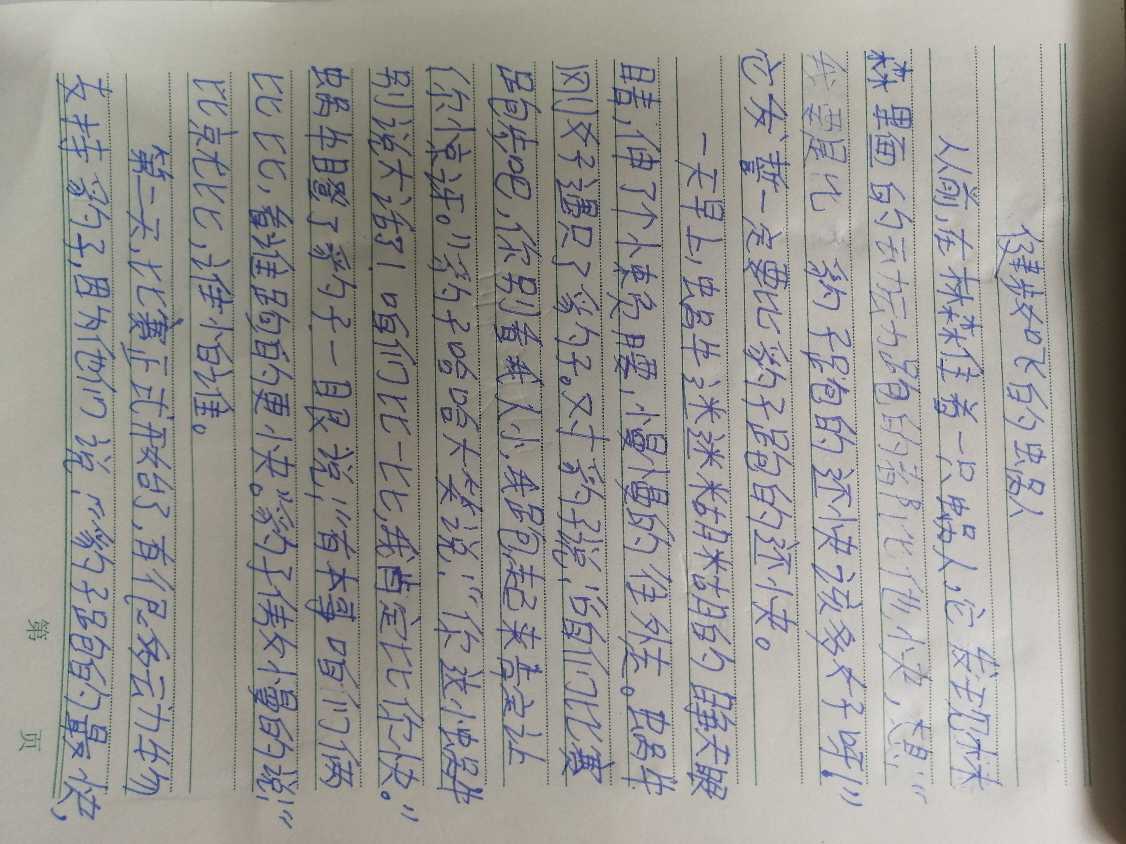 的蜗人
人前,在林森住着一只蜗人,它发现林
森里面的动物跑的都比他快,想:"
比豹子跑的还快该多好呀!"
它发誓一定要比豹子跑的还快。
一天早上,蜗牛迷迷糊糊的睁开眼
睛,伸了个小懒腰,慢慢的往外走。蜗牛
刚好遇见了豹子。对豹子说:"咱们比赛
跑步吧,你别看我人小,我跑起来肯定让
你惊讶。"豹子哈哈大笑说:"你这小蜗牛
别说大话了!咱们比一比我肯定比你快。"
蜗牛瞪了豹子一眼说:"有本事咱们俩
比比,看谁跑的更快。"豹子傲慢的说:"
比就比,谁怕谁。
第二天,比赛正式开始了,有很多动物
支持豹子,因为他们说:"豹子跑的最快,
第 页